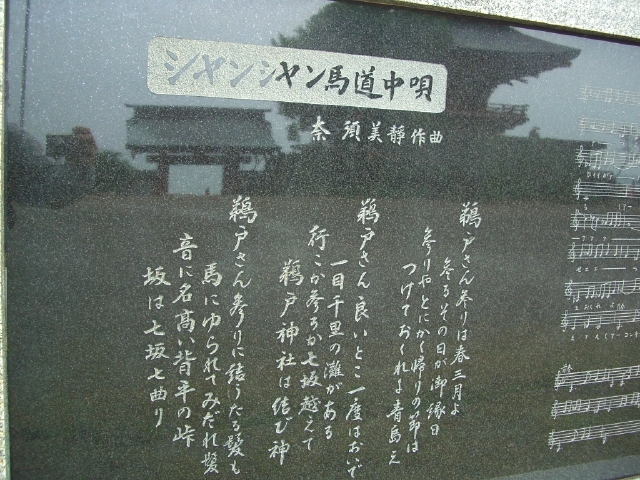 シャンシャン馬道中唄
奈須美静作曲
鵜戸さん参りは春三月よ
参るその日が御縁日
参りゃとにかく帰りの節は
つけておくれよ青島え
鵜戸さん良いとこ一度はおいで
一目千里の灘がある
行こか参ろか七坂越えて
鵜戸神社は結び神
鵜戸さん参りに結うたる髪も
馬にゆられてみだれ髪
音に名高い背平の峠
坂は七坂七曲り